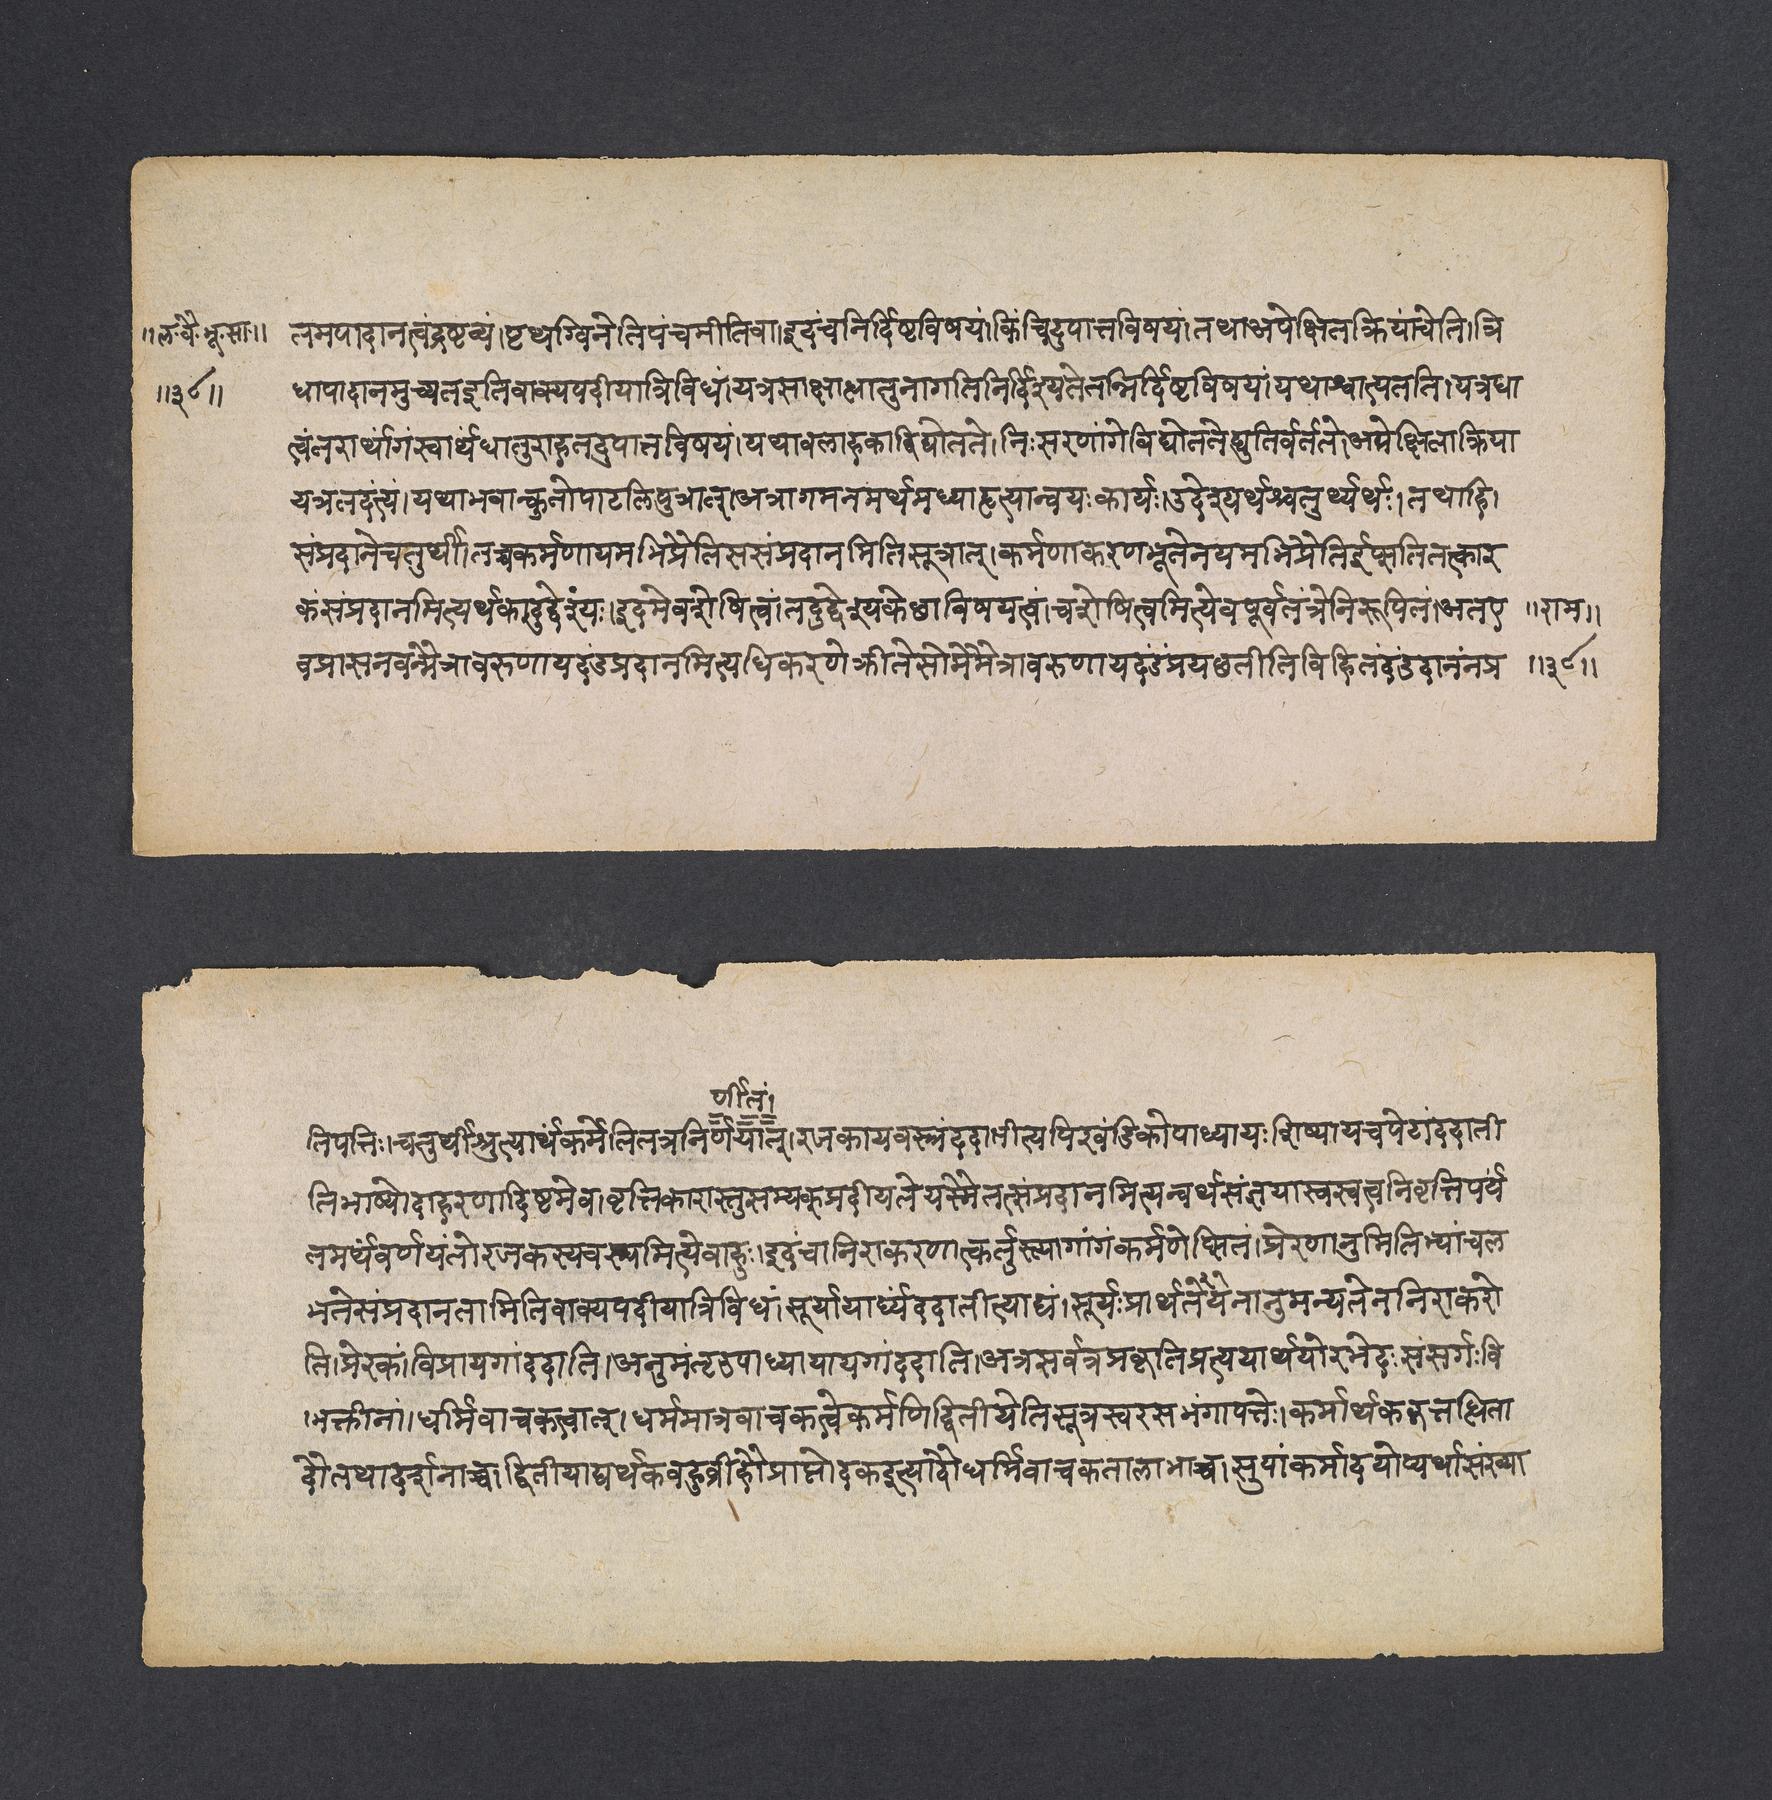 ॥ल॰वै॰भू॰सा॰॥
॥३८॥
तमपादानत्वंद्रष्टव्यं।पृथग्विनेतिपंचमीतिवा।इदंचनिर्दिष्टविषयं।किंचिदुपात्तविषयं।तथाअपेक्षितक्रियांचेति।त्रि
धापादानमुच्यतइतिवाक्यपदीयात्रिविधं।यत्रसाक्षाद्धातुनागतिर्निर्दिश्यतेतन्निर्दिष्टविषयं।यथाश्वात्पतति।यत्रधा
त्वंतरार्थांगंस्वार्थंधातुराहतदुपात्तविषयं।यथावलाहकाद्विद्योतते।निःसरणांगेविद्योततेद्युतिर्वर्तते।अपेक्षिताक्रिया
यत्रतदंत्यं।यथाभवान्कुतोपाटलिपुत्रात्।अत्रागमनमर्थमध्याहृत्यान्वयःकार्यः।उद्देश्यर्थश्चतुर्थ्यर्थः।तथाहि।
संप्रदानेचतुर्थी।तच्चकर्मणायमभिप्रैतिससंप्रदानमितिसूत्रात्।कर्मणाकरणभूतेनयमभिप्रैतिईप्सतितत्कार
कंसंप्रदानमित्यर्थकादुद्देश्यः।इदमेवशेषित्वं।तदुद्देश्यकेछाविषयत्वं।चशेषित्वमित्येवपूर्वतंत्रेनिरूपितं।अतए
वप्रासनवन्मैत्रावरुणायदंडप्रदानमित्यधिकरणेक्रीतेसोमेमैत्रावरुणायदंडंप्रयछतीतिविहितंदंडदानंनप्र
॥राम॥
॥३८॥
र्णीतं।
तिपत्तिः।चतुर्थीश्रुत्यार्थकर्मेतितत्रनिर्णयात्।रजकायवस्त्रंददातीत्यपिखंडिकोपाध्यायःशिष्यायचपेटांददाती
तिभाष्योदाहरणादिष्टमेव।वृत्तिकारास्तुसम्यक्प्रदीयतेयस्मैतत्संप्रदानमित्यन्वर्थसंज्ञयास्वस्वत्वनिवृत्तिपर्यं
तमर्थंवर्णयंतोरजकस्यवस्त्रमित्येवाहुः।इदंचानिराकरणात्कर्तुस्त्यागांगंकर्मणेप्सितं।प्रेरणानुमितिभ्यांचल
भतेसंप्रदानतामितिवाक्यपदीयात्रिविधं।सूर्यायार्घ्यंददातीत्याद्यं।सूर्यःप्रार्थतेयेनानुमन्यतेननिराकरो
ति।प्रेरकं।विप्रायगांददाति।अनुमंतृउपाध्यायायगांददाति।अत्रसर्वत्रप्रकृतिप्रत्ययार्थयोरभेदःसंसर्गःवि
भक्तीनां।धर्मिवाचकत्वात्।धर्ममात्रवाचकत्वेकर्मणिद्वितीयेतिसूत्रस्वरसभंगापत्तेः।कर्मार्थककृत्तद्धिता
दौतथादर्शनाच्च।द्वितीयाद्यर्थकबहुव्रीहौप्राप्तोदकइत्यादौधर्मिवाचकतालाभाच्च।सुपांकर्मादयोप्यर्थासंख्या